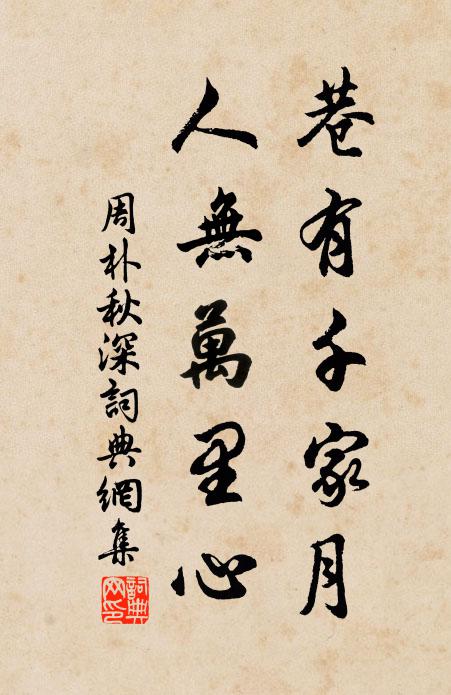 巷有千家月
人無萬里心
周朴秋深詞典網集
詞典
网印